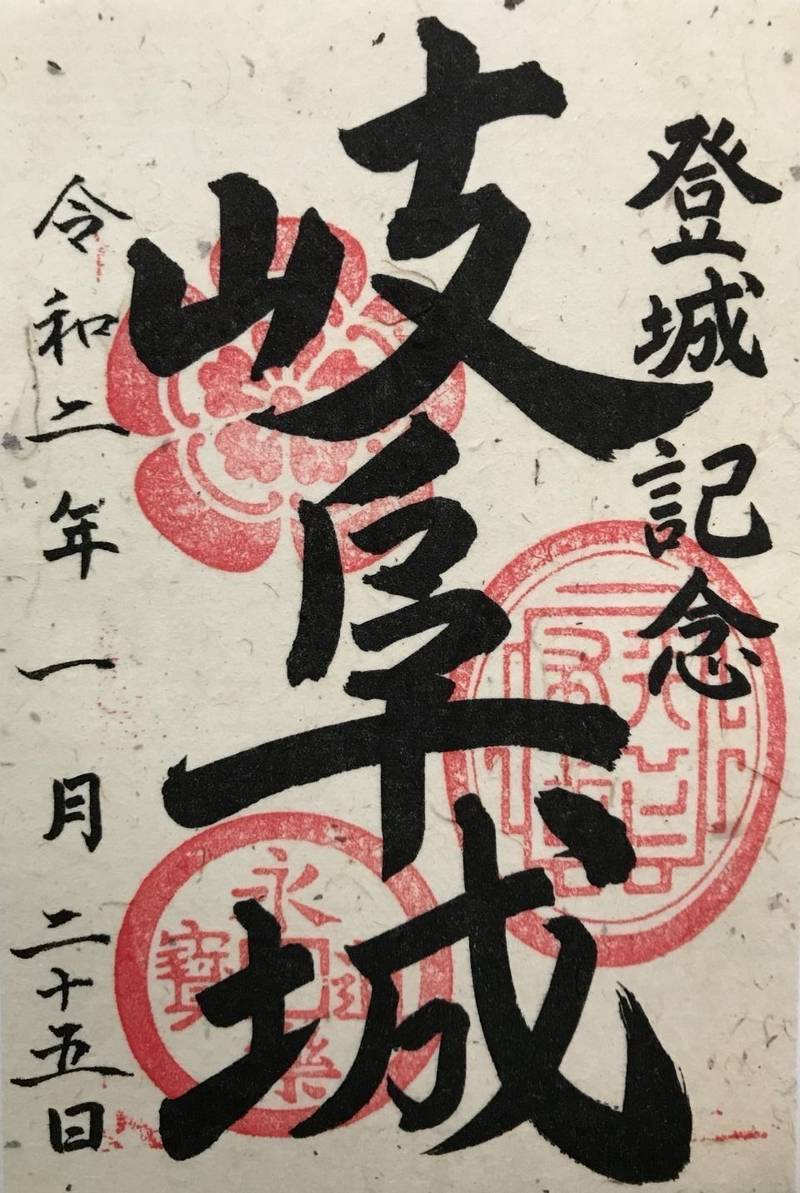 登城記念
岐阜城
令和二年一月二十五日
永樂通寳